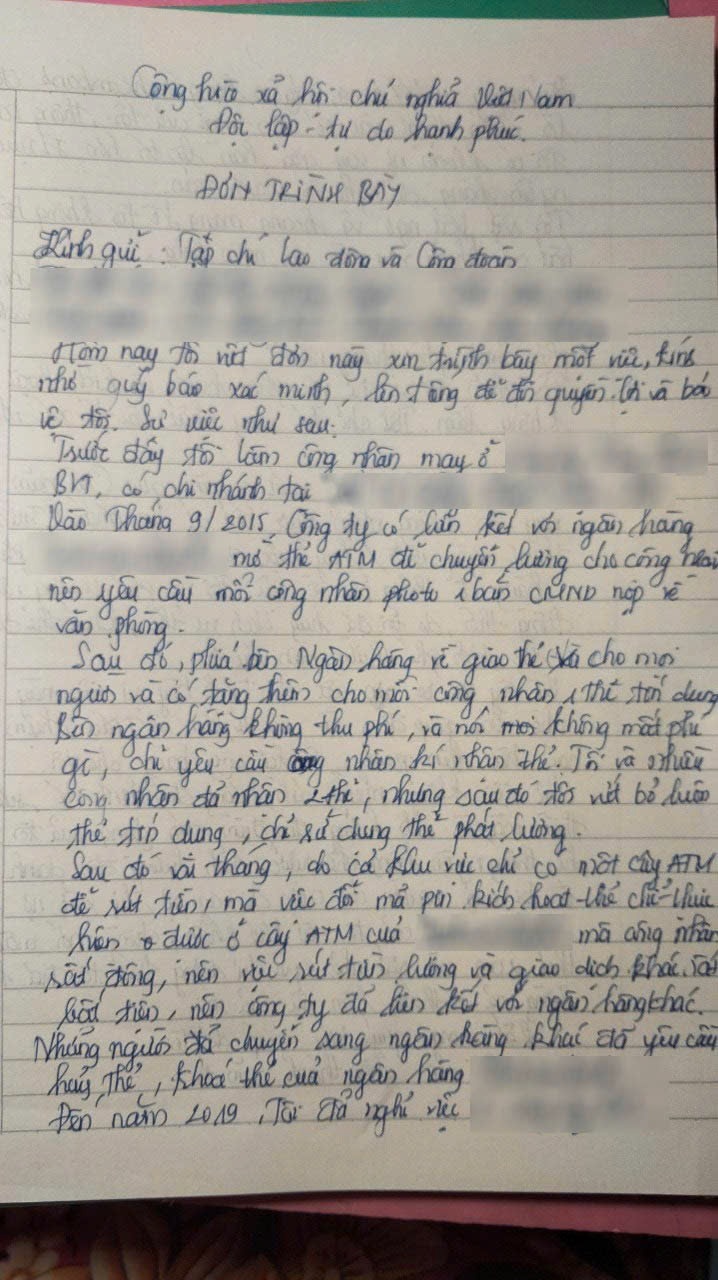 Cộng hoà xả hội chủ nghiã Việt Nam
Độc lập - tự do hạnh phúc.
ĐƠN TRÌNH BÀY
Kính gửi : Tạp chí lao động và Công đoàn
Hôm nay tôi viết đơn này xin trình bày một việc, kính
nhờ quý báo xác minh, lên tiếng để đòi quyền lợi và bảo
vệ tôi. Sự việc như sau:
Trước đây tôi làm công nhân may ở
BVT, có chi nhánh tại
Vào Tháng 9/2015, Công ty có liên kết với ngân hàng
mở thẻ ATM để chuyển lương cho công nhân
nên yêu cầu mỗi công nhân photo 1 bản CMND nộp về
văn phòng.
Sau đó, phiá bên Ngân hàng về giao thẻ cho mọi
người và có tặng thêm cho mỗi công nhân 1 thẻ tín dụng
Bên ngân hàng không thu phí, và nói mọi không mất phí
gì, chỉ yêu cầu công nhân kí nhận thẻ. Tôi và nhiều
công nhân đã nhận 2 thẻ, nhưng sau đó tôi vứt bỏ luôn
thẻ tín dụng, chỉ sử dụng thẻ phát lương.
Sau đó vài tháng, do cả khu vực chỉ có một cây ATM
để rút tiền, mà việc đổi mã pin kích hoạt thẻ chỉ thực
hiện được ở cây ATM cuả mà công nhân
rất đông, nên việc rút tiền lương và giao dịch khác rất
bất tiện, nên công ty đã liên kết với ngân hàng khác.
Những người đã chuyển sang ngân hàng khác đã yêu cầu
huỷ thẻ, khoá thẻ cuả ngân hàng
Đến năm 2019, Tôi đã nghỉ việc